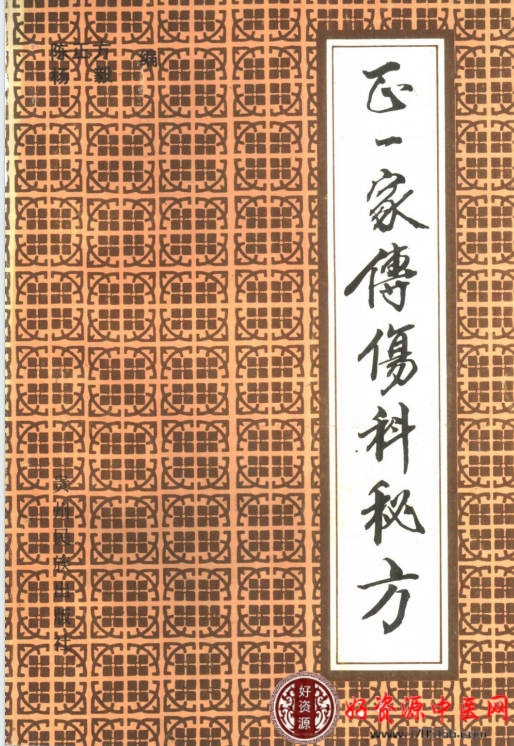 正一家傳傷科秘方
陈正方
杨毅
编
贵州民族出版社
好资源
好资源中医网